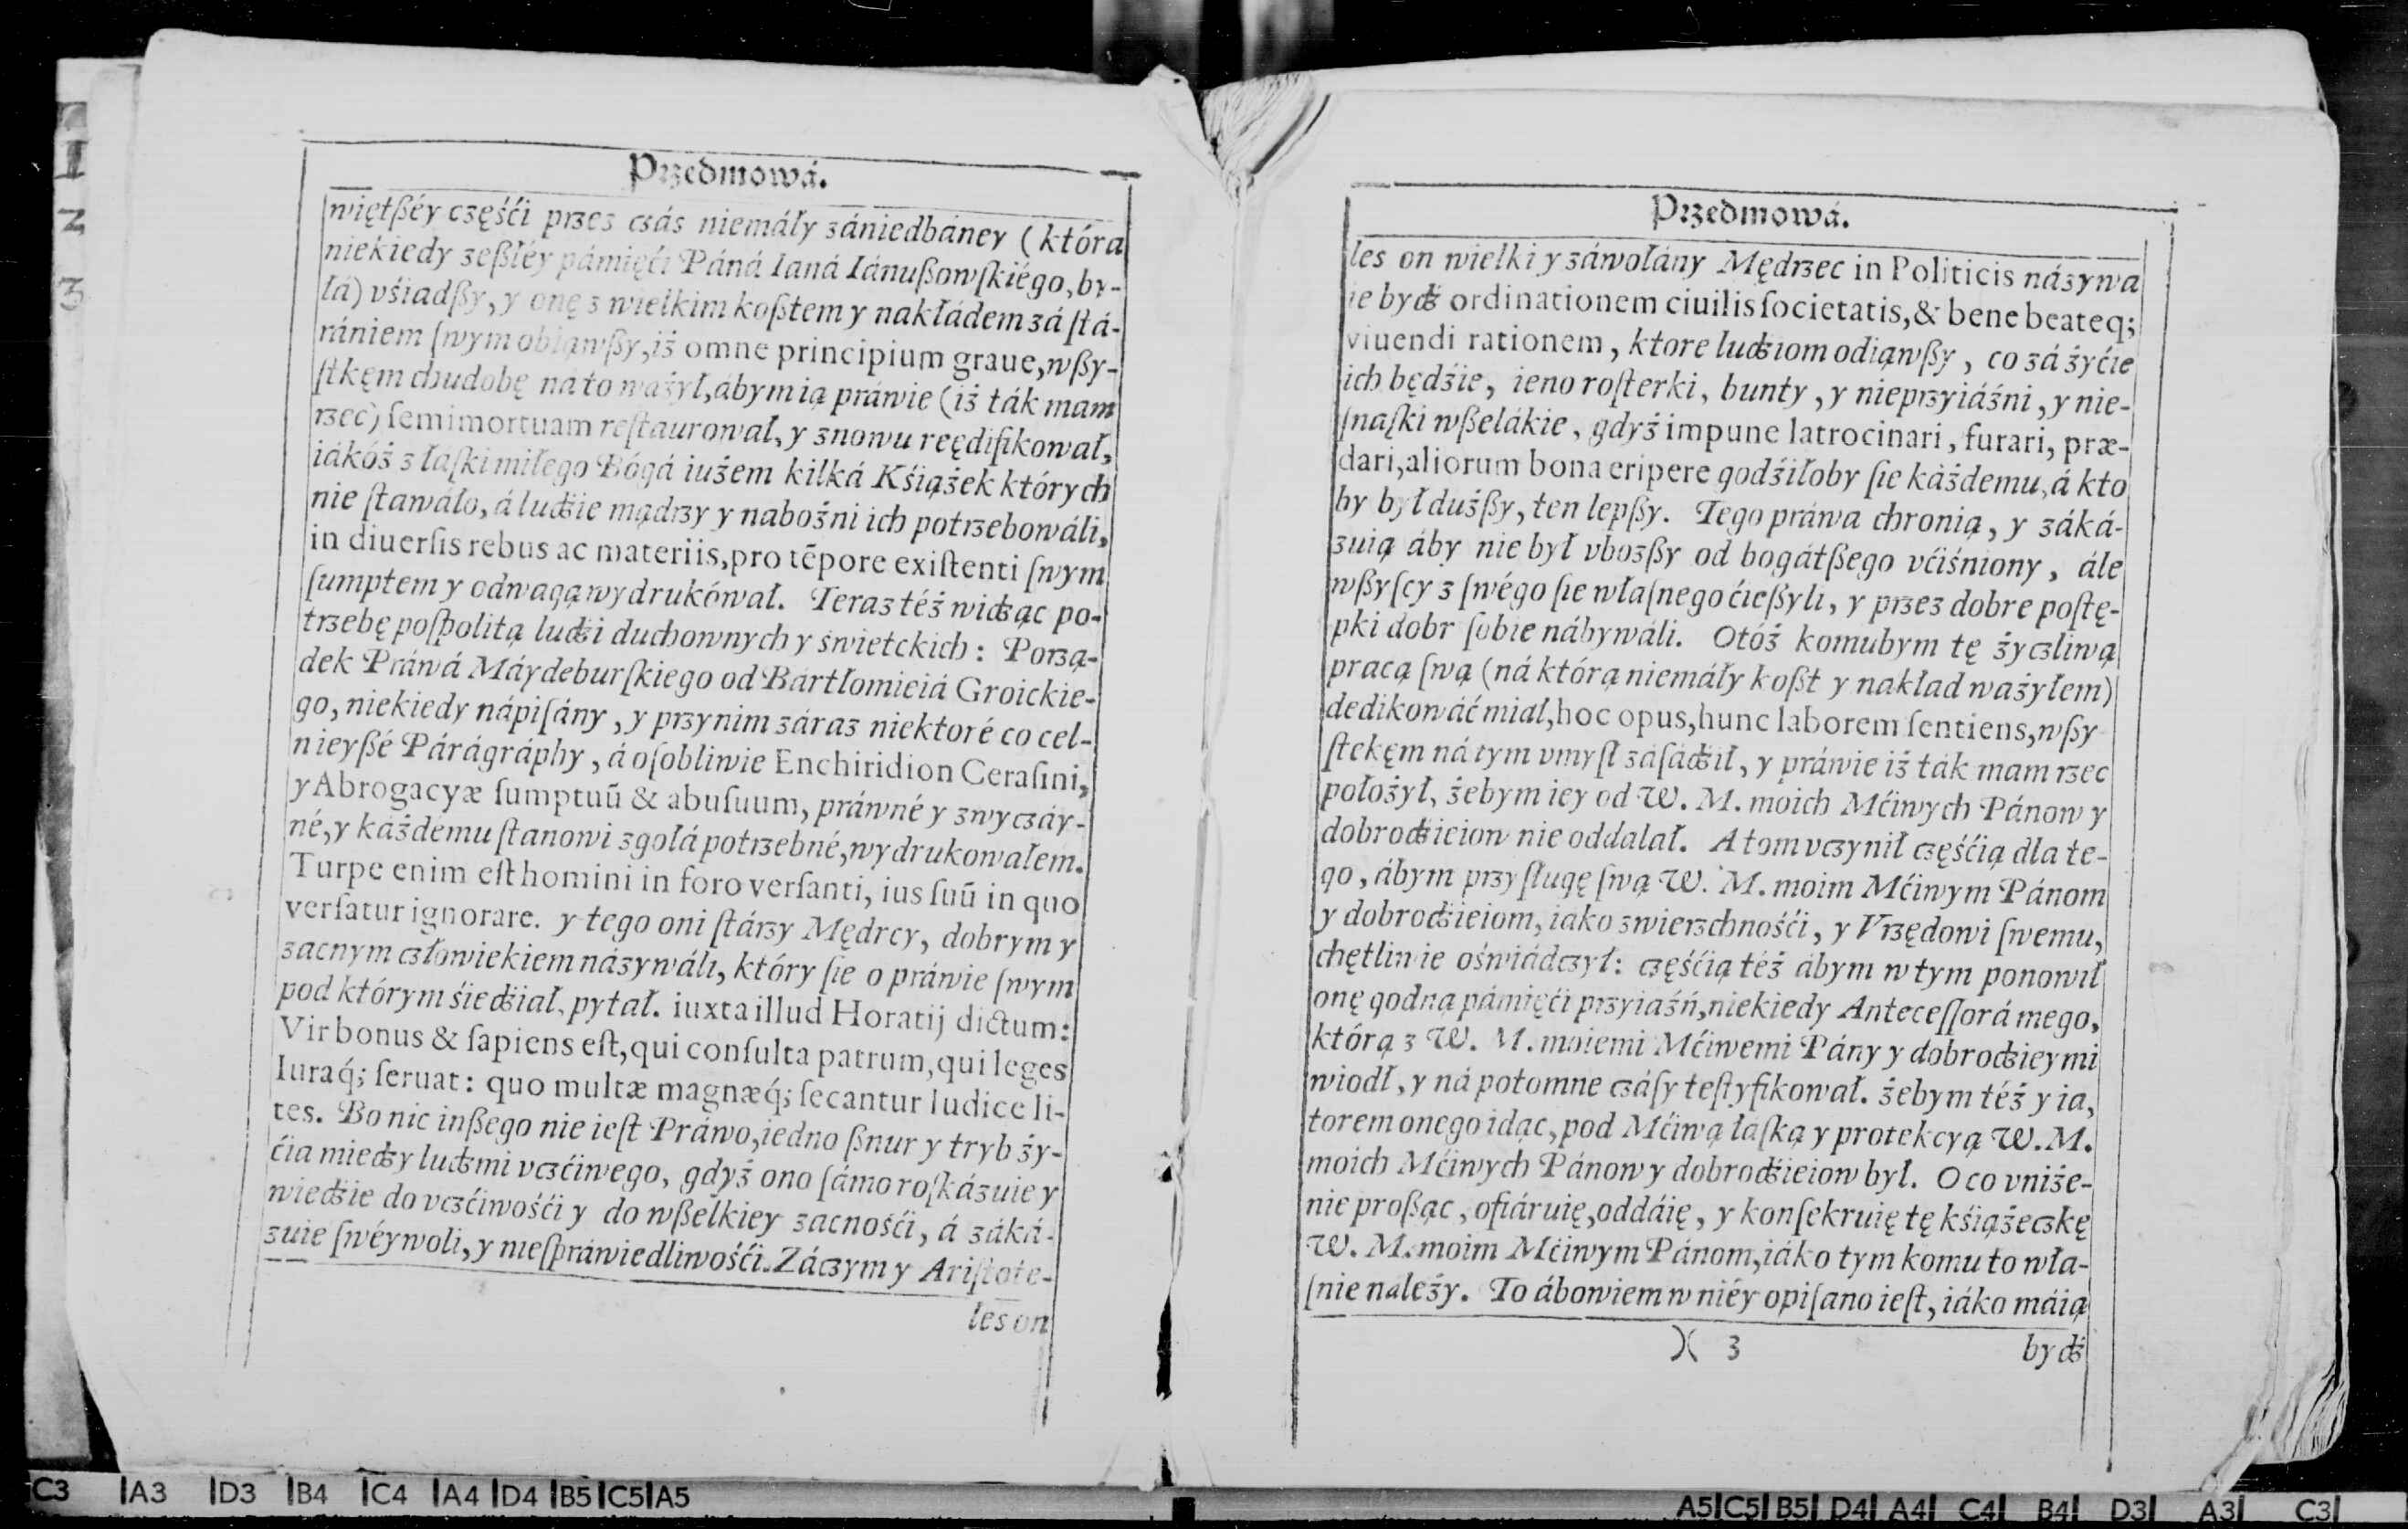 Przedmowá.
więtßéy częśći przez czás niemáły zániedbáney (która
niekiedy zeßłéy pámięći Páná Ianá Iánußowſkiégo, by-
łá) vśiadßy, y onę z wielkim koßtem y nakłádem zá ſtá-
rániem ſwym obiąwßy, iż omne principium graue, wßy-
ſtkęm chudobę ná to ważył, ábym ią práwie (iż ták mam
rzec) ſemimortuam reſtaurował, y znowu reędifikował,
iákóż z łáſki miłego Bógá iużem kilká Kśiążek których
nie ſtawáło, á ludźie mądrzy y nabożni ich potrzebowáli,
in diuerſis rebus ac materiis, pro tẽpore exiſtenti ſwym
ſumptem y odwagą wydrukówał. Teraz téż widząc po-
trzebę poſpolitą ludźi duchownych y świetckich: Porzą-
dek Práwá Máydeburſkiego od Bártłomieiá Groickie-
go, niekiedy nápiſány, y przy nim záraz niektoré co cel-
nieyßé Párágráphy, á oſobliwie Enchiridion Ceraſini,
y Abrogacyæ ſumptuũ & abuſuum, práwné y zwyczáy-
né, y káżdému ſtanowi zgołá potrzebné, wydrukowałem.
Turpe enim eſt homini in foro verſanti, ius ſuũ in quo
verſatur ignorare. y tego oni ſtárzy Mędrcy, dobrym y
zacnym człowiekiem názywáli, który ſie o práwie ſwym
pod którym śiedźiał, pytał. iuxta illud Horatij dictum:
Vir bonus & ſapiens eſt, qui conſulta patrum, qui leges
Iuraq́; ſeruat: quo multæ magnæq́; ſecantur Iudice li-
tes. Bo nic inßego nie ieſt Práwo, iedno ßnur y tryb ży-
ćia miedzy ludźmi vczćiwego, gdyż ono ſámo roſkázuie y
wiedźie do vczćiwośći y do wßelkiey zacnośći, á záká-
zuie ſwéywoli, y nieſpráwiedliwośći. Záczym y Ariſtote-
les on
Przedmowá.
les on wielki y záwołány Mędrzec in Politicis názywa
ie bydź ordinationem ciuilis ſocietatis, & bene beateq;
viuendi rationem, ktore ludźiom odiąwßy, co zá żyćie
ich będźie, ieno roſterki, bunty, y nieprzyiáźni, y nie-
ſnaſki wßelákie, gdyż impune latrocinari, furari, præ-
dari, aliorum bona eripere godźiłoby ſie káżdemu, á kto
by był dużßy, ten lepßy. Tego práwa chronią, y záká-
zuią áby nie był vbozßy od bogátßego vćiśniony, ále
wßyſcy z ſwégo ſie właſnego ćießyli, y przez dobre poſtę-
pki dobr ſobie nábywáli. Otóż komubym tę życzliwą
pracą ſwą (ná którą niemáły koßt y nakład ważyłem)
dedikowáć miał, hoc opus, hunc laborem ſentiens, wſy
ſtekęm ná tym vmyſł záſádźił, y práwie iż ták mam rzec
położył, żebym iey od W. M. moich Mćiwych Pánow y
dobrodźieiow nie oddalał. A tom vczynił częśćią dla te-
go, ábym przyſługę ſwą W. M. moim Mćiwym Pánom
y dobrodźieiom, iáko zwierzchnośći, y Vrzędowi ſwemu,
chętliwie oświádczył: częśćią téż ábym w tym ponowił
onę godną pámięći przyiaźń, niekiedy Anteceſſorá mego,
którą z W. M. moiemi Mćiwemi Pány y dobrodźieymi
wiodł, y ná potomne czáſy teſtyfikował. żebym téż y ia,
torem onego idąc, pod Mćiwą łaſką y protekcyą W. M.
moich Mćiwych Pánow y dobrodźieiow był. O co vniże-
nie proßąc, ofiáruię, oddáię, y konſekruię tę kśiążeczkę
W. M. moim Mćiwym Pánom, iáko tym komu to wła-
ſnie należy. To ábowiem w niéy opiſano ieſt, iáko máią
)( 3 bydź
1
2
3
C3 A3 D3 B4 C4 A4 D4 B5 C5 A5
A5 C5 B5 D4 A4 C4 B4 D3 A3 C3